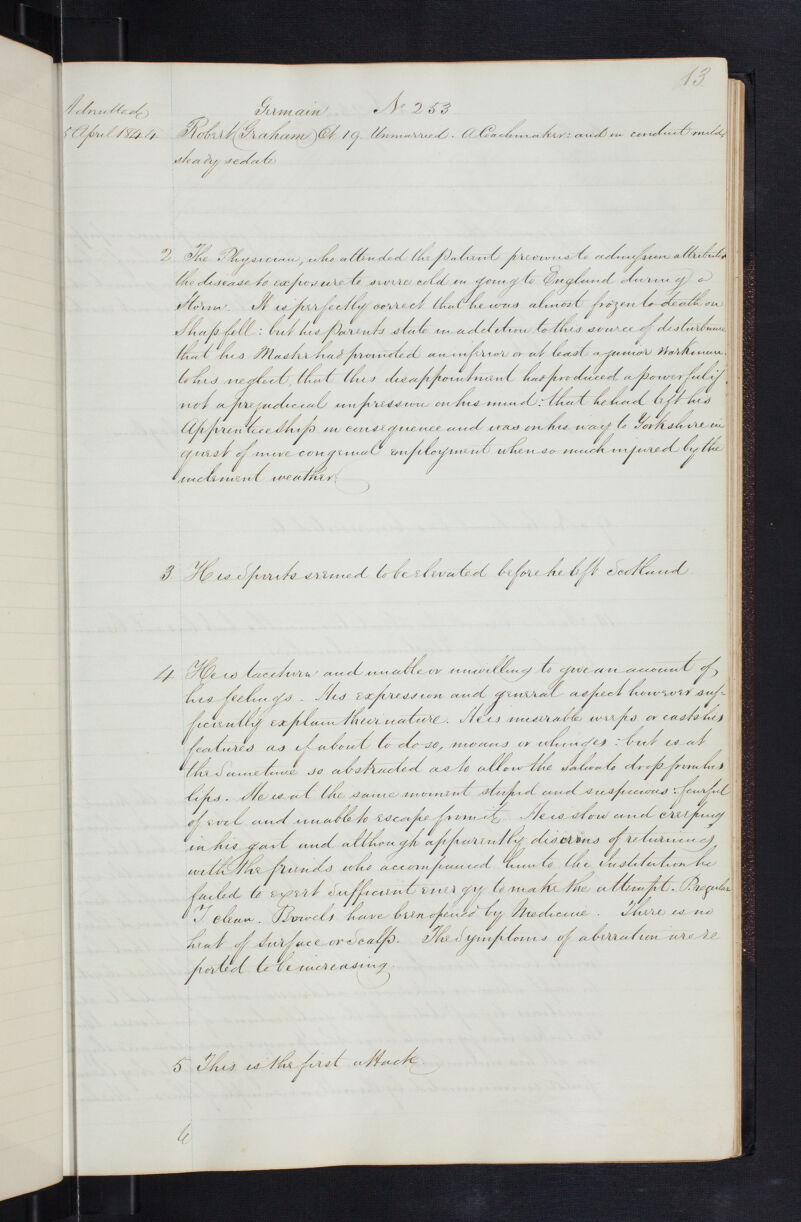 13
Admitted Germain No 253
5 April 1844 Robert Graham Æt 19 Unmarried. A Coachmaker: and in conduct mild,
steady sedate
2 The Physician, who attended the patient previous to admission attributes
the disease to exposure to severe cold in going to England during a
Storm. It is perfectly correct that he was almost frozen to death on
Shap fell: but his Parents state in addition to this source of disturbance
that his Master had promoted an inferior or at least a junior Workman
to his neglect, that this disappointment has produced a powerful if
not a prejudicial impression on his mind: that he had left his
Apprenticeship in consequence and was on his way to Yorkshire in
quest of more congenial employment when so much injured by the
inclement weather.
3 His Spirits seemed to be elevated before he left Scotland
4 He is taciturn and unable or unwilling to give an account of
his feelings. His expression and general aspect however suf-
ficiently explain their nature. He is miserable weeps or casts his
features as if about to do so, moans or whinges: but is at
the Sametime so abstracted as to allow the Saliva to drop from his
lips. He is at the same moment stupid and suspicious: fearful
of evil and unable to escape from it. He is slow and creeping
in his gait and although apparently desirous of returning
with the friends who accompanied him to the Institution he
failed to exert Sufficient energy to make the attempt. P. regular
T clean. Bowels have been opened by Medicine. There is no
heat of Surface or Scalp. The Symptoms of aberration are re
ported to be increasing.
5 This is the first attack
6